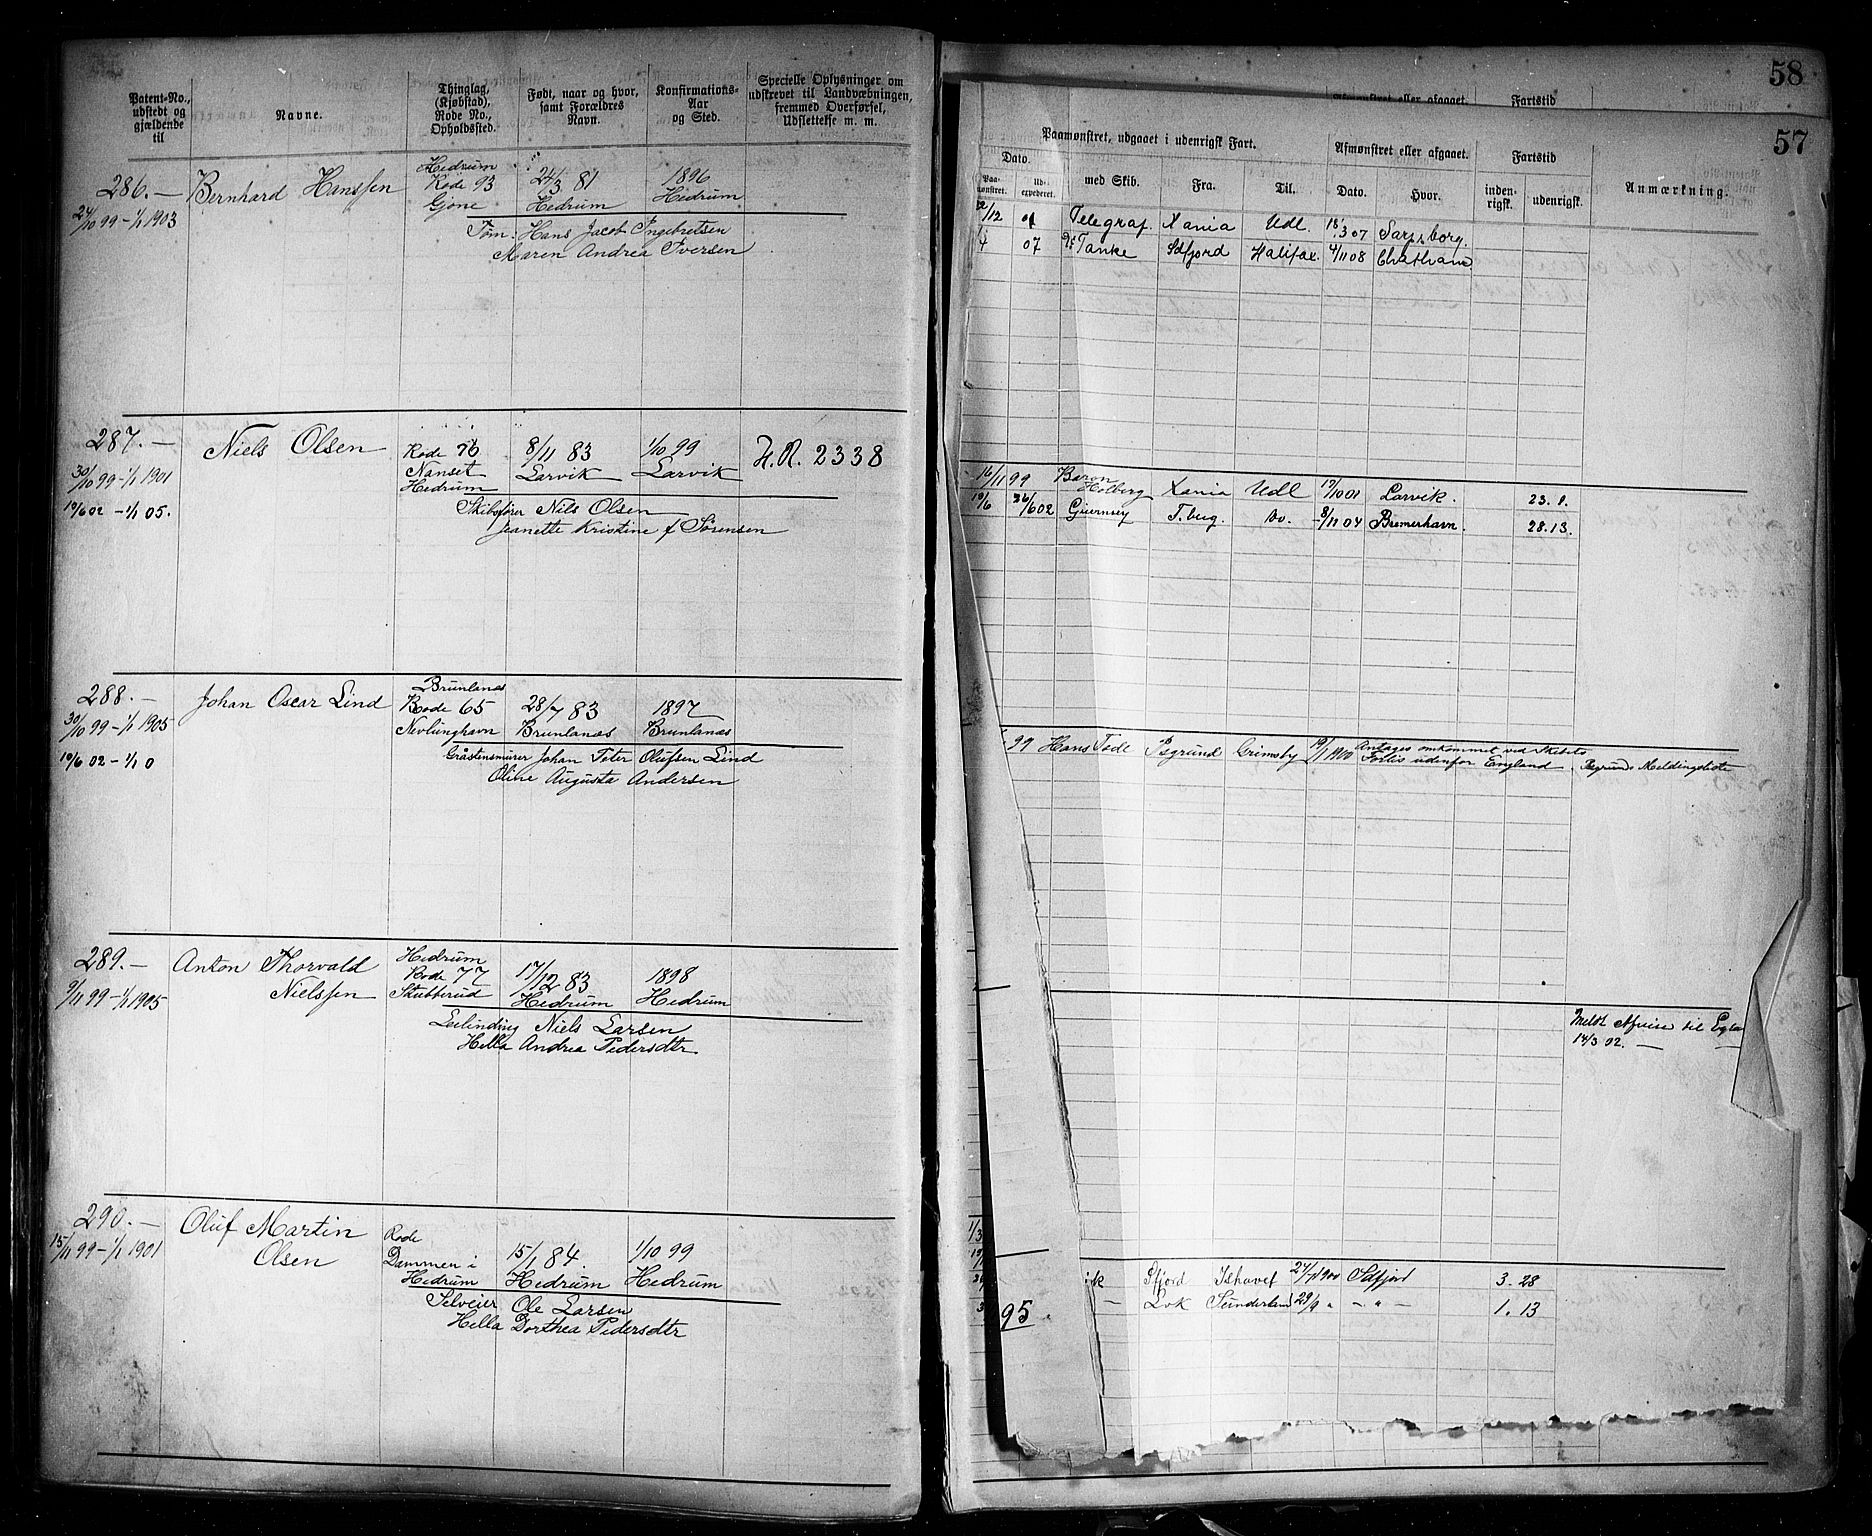 Patent-No., udstedt og gjældende til
Navne.
Thinglag, (Kjøbstad), Rode No., Opholdssted.
Født, naar og hvor, samt Forældres Navn.
Konfirmations-Aar og Sted.
Specielle Oplysninger om udskrevet til Landvæbningen, fremmed Overførsel, Udslettelse m. m.
286. —
24/10 99 – 1/1 1903
Bernhard Hanssen
Hedrum
Rode 93
Gjone
24/3 81
Hedrum
1896
Hedrum
Tøm. Hans Jacob Ingebretsen
Maren Andrea Iversen
287. —
30/10 99 – 1/1 1901
19/6 02 – 1/1 05.
Niels Olsen
Rode 76
Nanset
Hedrum
8/11 83
Larvik
1/10 99
Larvik
H.R. 2338
Skibsfører Nils Olsen
Jeanette Kristine f Sørensen
288. —
30/10 99 – 1/1 1905
19/6 02 – 1/1 0
Johan Oscar Lind
Brunlanæs
Rode 65
Nevlunghavn
28/7 83
Brunlanæs
1897
Brunlanæs
Gråstensmurer Johan Peter Olufsen Lind
Oline Augusta Andersen
289. —
9/11 99 – 1/1 1905
Anton Thorvald
Nielssen
Hedrum
Rode 77
Skubberud
17/12 83
Hedrum
1898
Hedrum
Leilinding Niels Larsen
Hella Andrea Pedersdtr
290. —
15/11 99 – 1/1 1901
Oluf Martin
Olsen
Rode
Dammen i
Hedrum
15/1 84.
Hedrum
1/10 99
Hedrum
Selveier Ole Larsen
Hella Dorthea Pedersdtr
58
Afmønstret eller afgaaet.
Fartstid
57
Paamønstret, udgaaet i udenrigsk Fart.
Afmønstret eller afgaaet.
Fartstid
Anmærkning.
Dato.
Paamønstret.
Udexpederet.
med Skib.
Fra.
Til.
Dato.
Hvor.
indenrigsk.
udenrigsk.
/12 01 Telegraf Xania Udl. 18/3 07 Sarpsborg.
/4 07 Tanke Sdfjord Halifax. 4/11 08 Chatham
16/11 99 Baron Holberg Xania Udl 17/10 01 Larvik. 23. 1.
19/6 /6 02 Guernsey T.berg. Do. 8/11 04 Bremerhavn. 28.13.
99 Hans Tode Psgrund Grimsby 19/1 1900 Antages omkommet ved Skibets
Forlis udenfor England. Psgrunds Meldingsliste
Meldt Afreise til
14/3 02. —
Sfjord Ishavet 27/7 1900 Sdfjord 3. 28
— Lvk Sunderland 29/9 " — " — 1. 13
95.